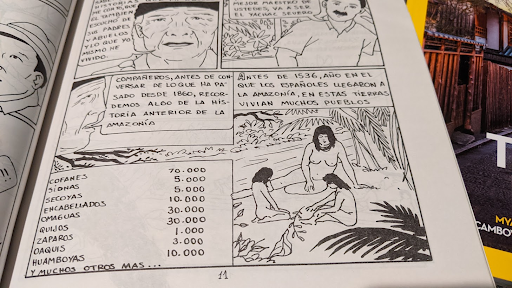 EL TAMBIEN
ESCUCHÓ DE
SUS PADRES
Y ABUELOS
Y LO QUE YO
MISMO HE
VIVIDO.
MEJOR MAESTRO DE
USTEDES, VA A SER
EL YACHAC SEVERO.
COMPAÑEROS, ANTES DE CON-
VERSAR DE LO QUE HA PA-
SADO DESDE 1860, RECOR-
DEMOS ALGO DE LA HIS-
TORIA ANTERIOR DE LA
AMAZONÍA
ANTES DE 1536, AÑO EN EL
QUE LOS ESPAÑOLES LLEGARON A
LA AMAZONÍA, EN ESTAS TIERRAS
VIVIAN MUCHOS PUEBLOS
COFANES 70.000
SIONAS 5.000
SECOYAS 5.000
ENCABELLADOS 10.000
OMAGUAS 30.000
QUIJOS 30.000
ZAPAROS 1.000
OAQUIS 3.000
HUAMBOYAS 10.000
Y MUCHOS OTROS MAS...
11
T
MYA
CAMBO